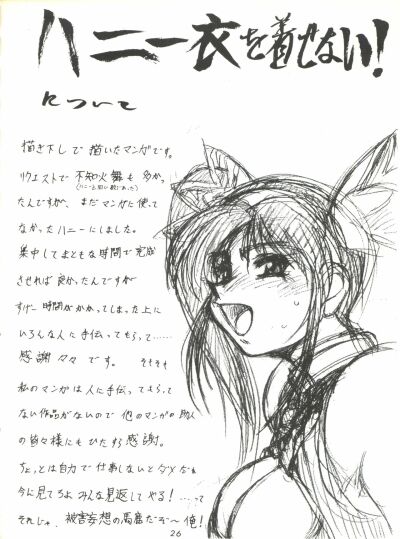 ハニー衣を着せない!
について
描き下しで描いたマンガです。
リクエストで不知火舞も多かっ
(ハニーと同じ位あった)
たんですが、まだマンガに使って
なかったハニーにしました。
集中してまともな時間で完成
させれば良かったんですが
すげー時間がかかってしまった上に
いろんな人に手伝ってもらって……
感謝々々です。 そもそも
私のマンガは人に手伝ってもらって
ない作品がないので他のマンガの助人
の皆々様にもひたすら感謝。
ちょっとは自力で仕事しないとダメだな
今に見てろよみんな見返してやる!……って
それじゃ、被害妄想の馬鹿だぞ〜俺!
26